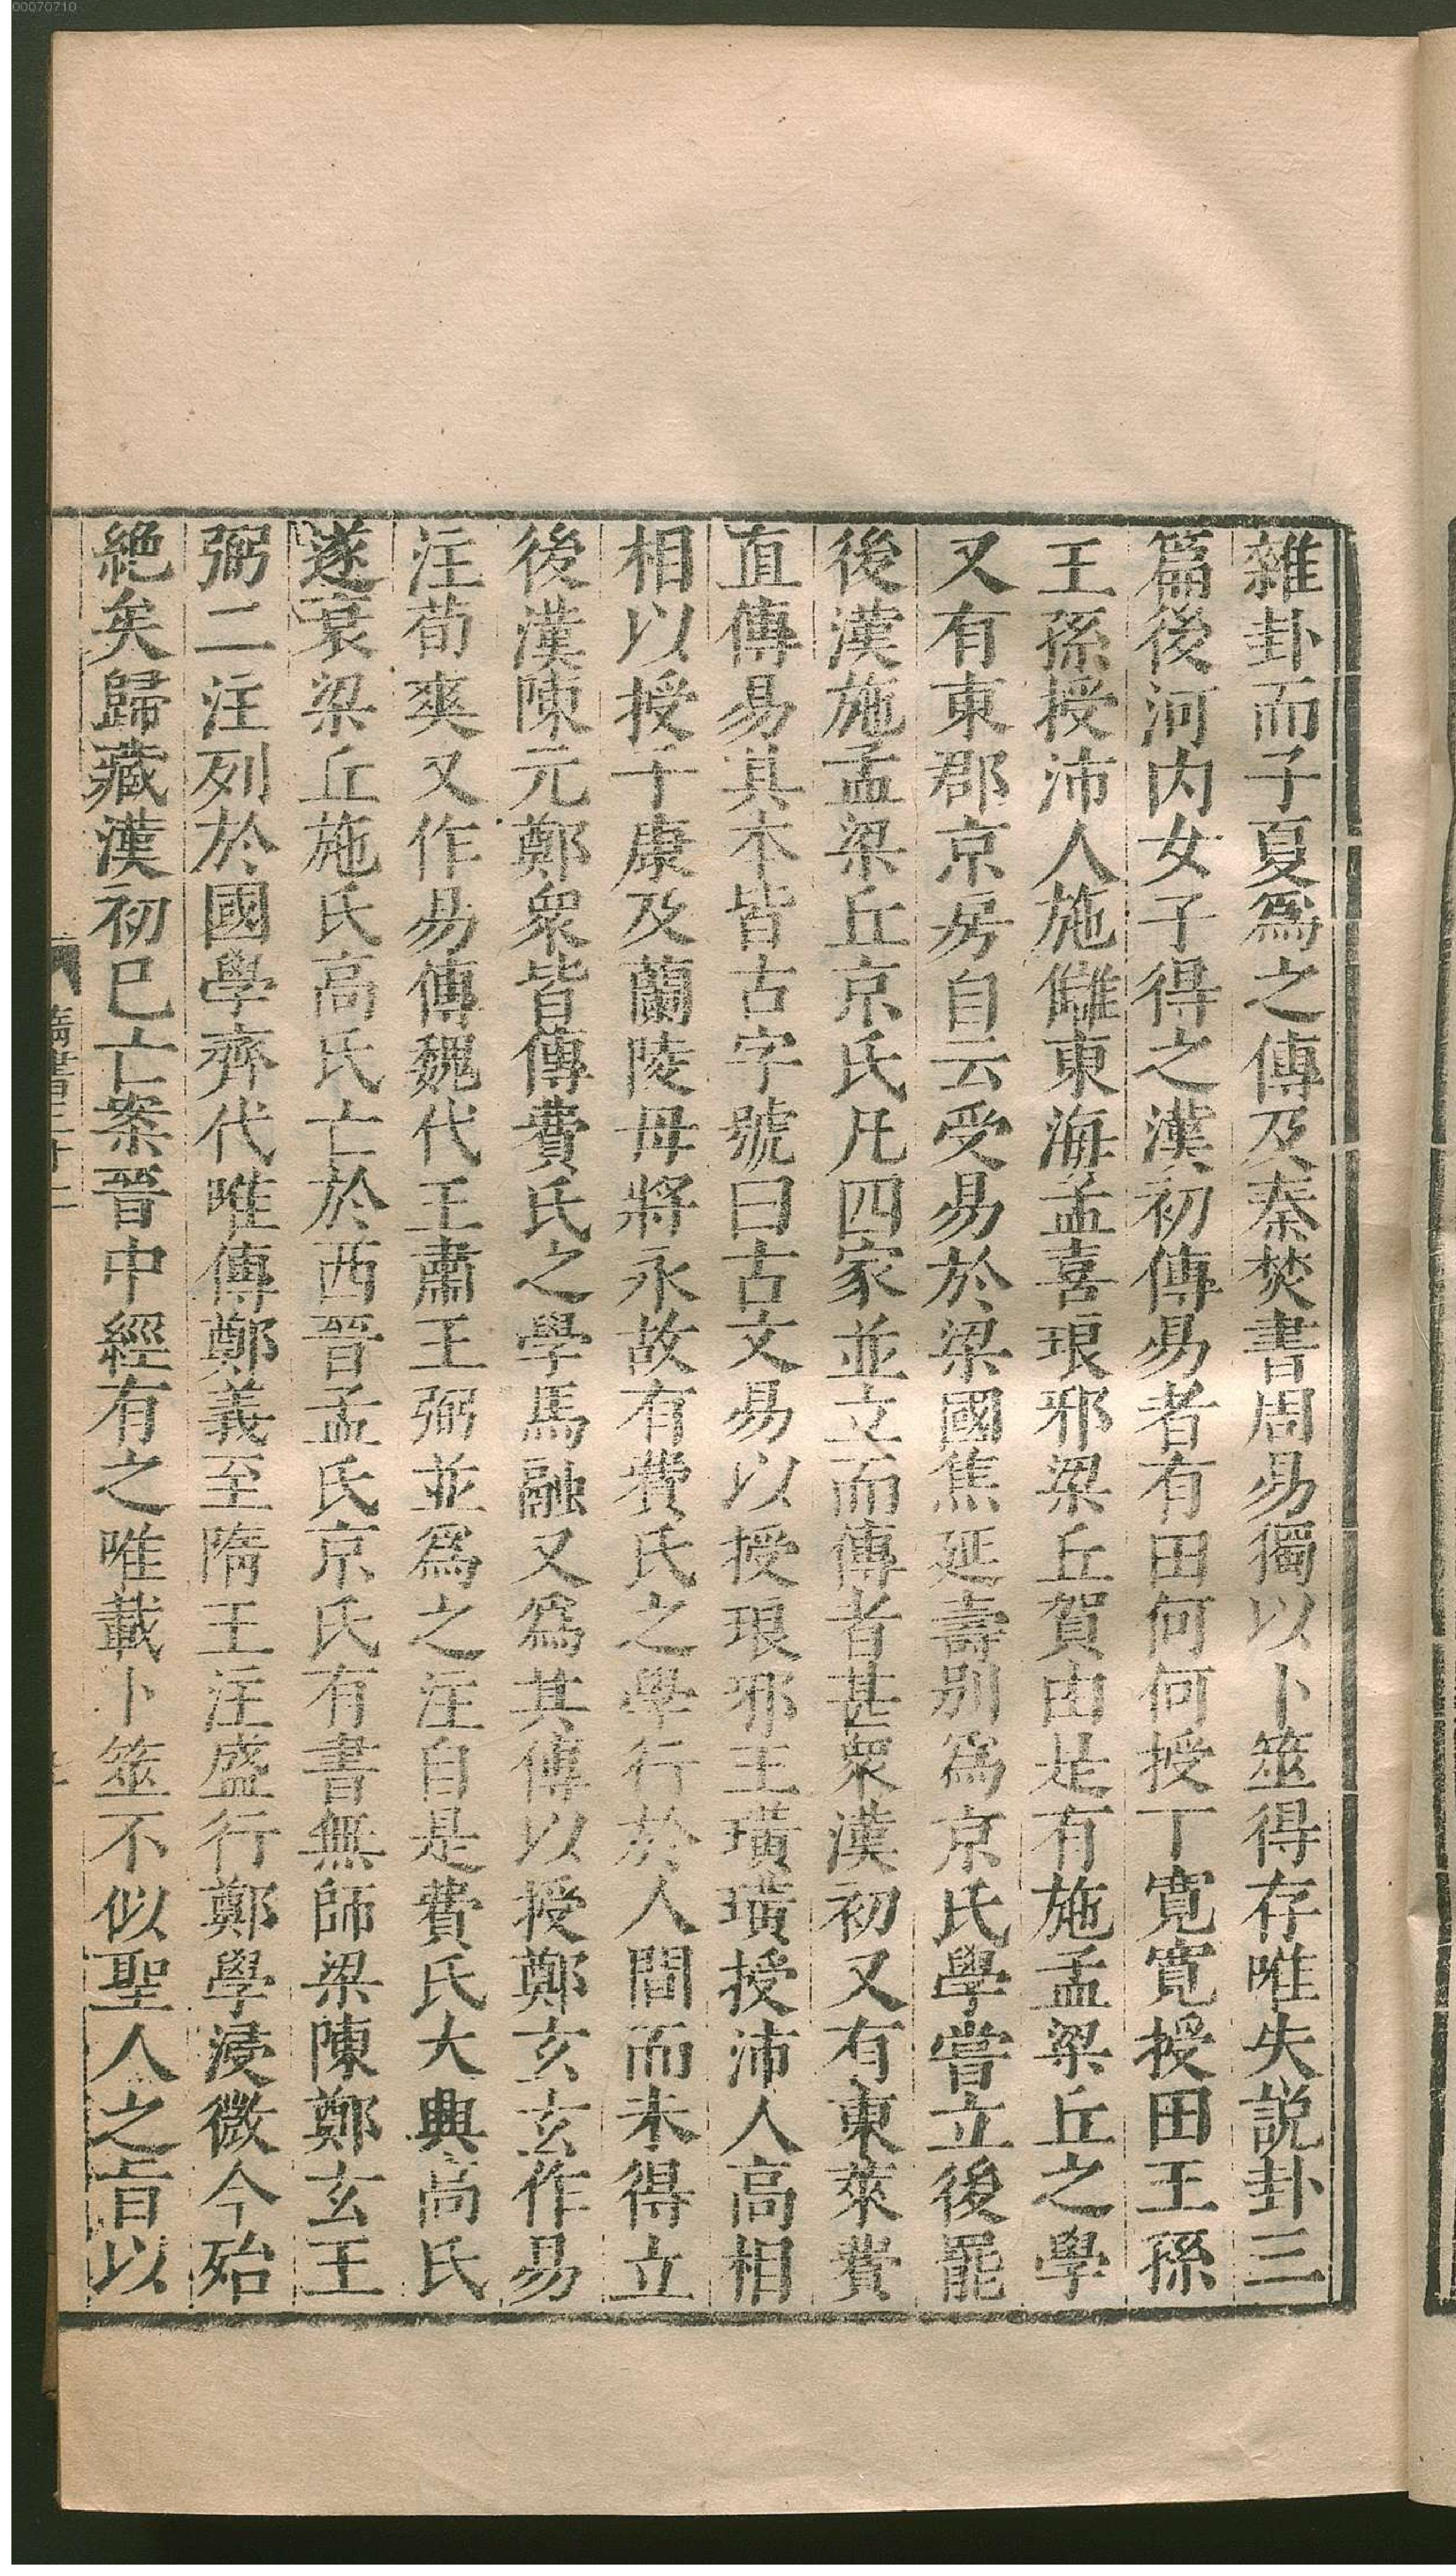 00070710
雜卦而子夏爲之傳及秦焚書周易獨以卜筮得存唯失説卦三
篇後河内女子得之漢初傳易者有田何何授丁寬寬授田王孫
王孫授沛人施讎東海孟喜琅邪梁丘賀由是有施孟梁丘之學
又有東郡京房自云受易於梁國焦延壽别爲京氏學嘗立後罷
後漢施孟梁丘京氏凡四家並立而傳者甚衆漢初又有東萊費
直傳易其本皆古字號曰古文易以授琅邪王璜璜授沛人高相
相以授子康及蘭陵毋將永故有費氏之學行於人間而未得立
後漢陳元鄭衆皆傳費氏之學馬融又爲其傳以授鄭玄玄作易
注荀爽又作易傳魏代王肅王弼並爲之注自是費氏大典高氏
遂衰梁丘施氏高氏亡於西晉孟氏京氏有書無師梁陳鄭玄王
弼二注列於國學齊代唯傳鄭義至隋王注盛行鄭學浸微今殆
絶矣歸藏漢初巳亡案晉中經有之唯載卜筮不似聖人之旨以